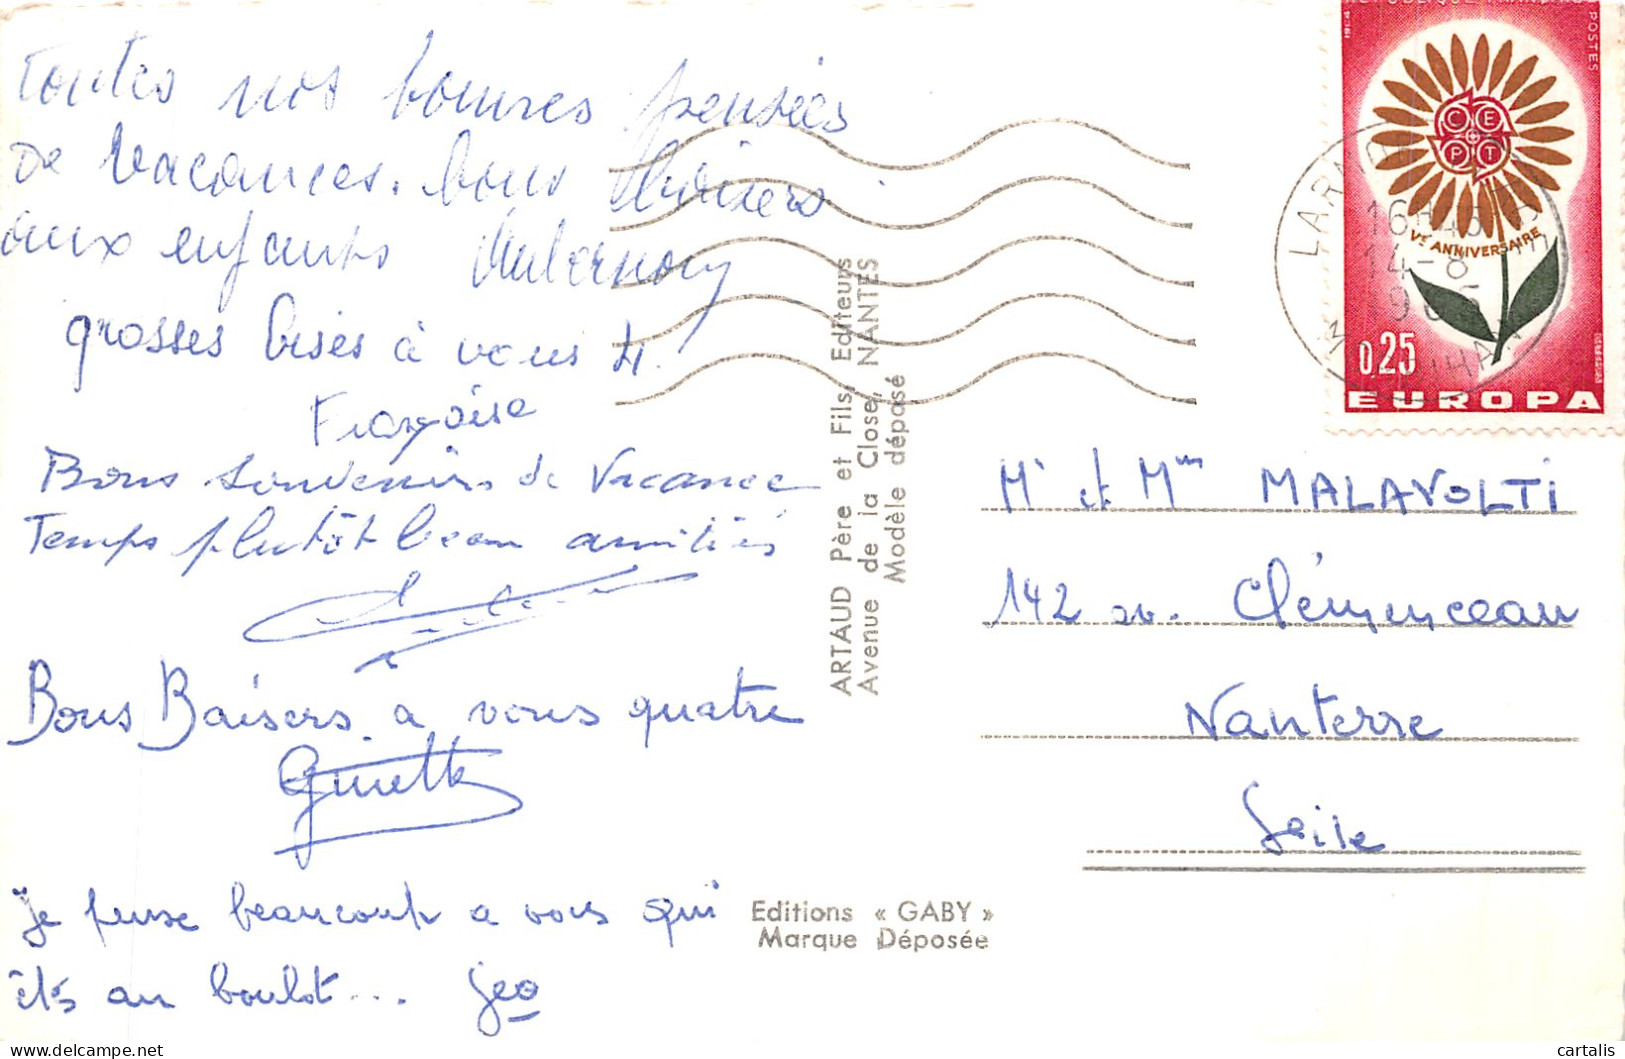 Toutes nos bonnes pensées
de vacances. bons
aux enfants
grosses bises à vous 4.
Françoise
Bons souvenirs de Vacance
Temps plutôt beau amitiés
Bons Baisers a vous quatre
Ginette
Je pense beaucoup a vous qui
êts au boulot... Geo
ARTAUD Père et Fils, Editeurs
Avenue de la Close, NANTES
Modèle déposé
Editions « GABY »
Marque Déposée
POSTES
1964
CEPT
Ve ANNIVERSAIRE
0,25
EUROPA
16H45
14-8
Mr et Mme MALAVOLTI
142 av. Clémenceau
Nanterre
Seine
cartalis